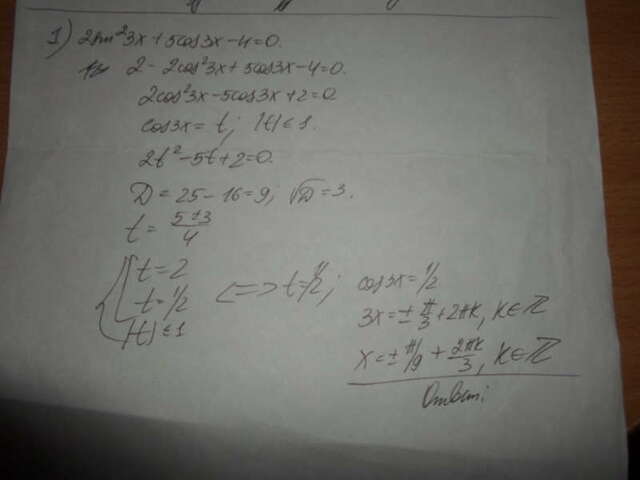 1) 2sin²3x + 5cos3x - 4 = 0.
2 - 2cos²3x + 5cos3x - 4 = 0.
2cos²3x - 5cos3x + 2 = 0
cos3x = t; |t| ≤ 1.
2t² - 5t + 2 = 0.
D = 25 - 16 = 9; √D = 3.
t = (5 ± 3)/4
t = 2
t = 1/2
|t| ≤ 1
<=> t = 1/2; cos3x = 1/2
3x = ± π/3 + 2πk, k ∈ Z
x = ± π/9 + 2πk/3, k ∈ Z
Ответ: